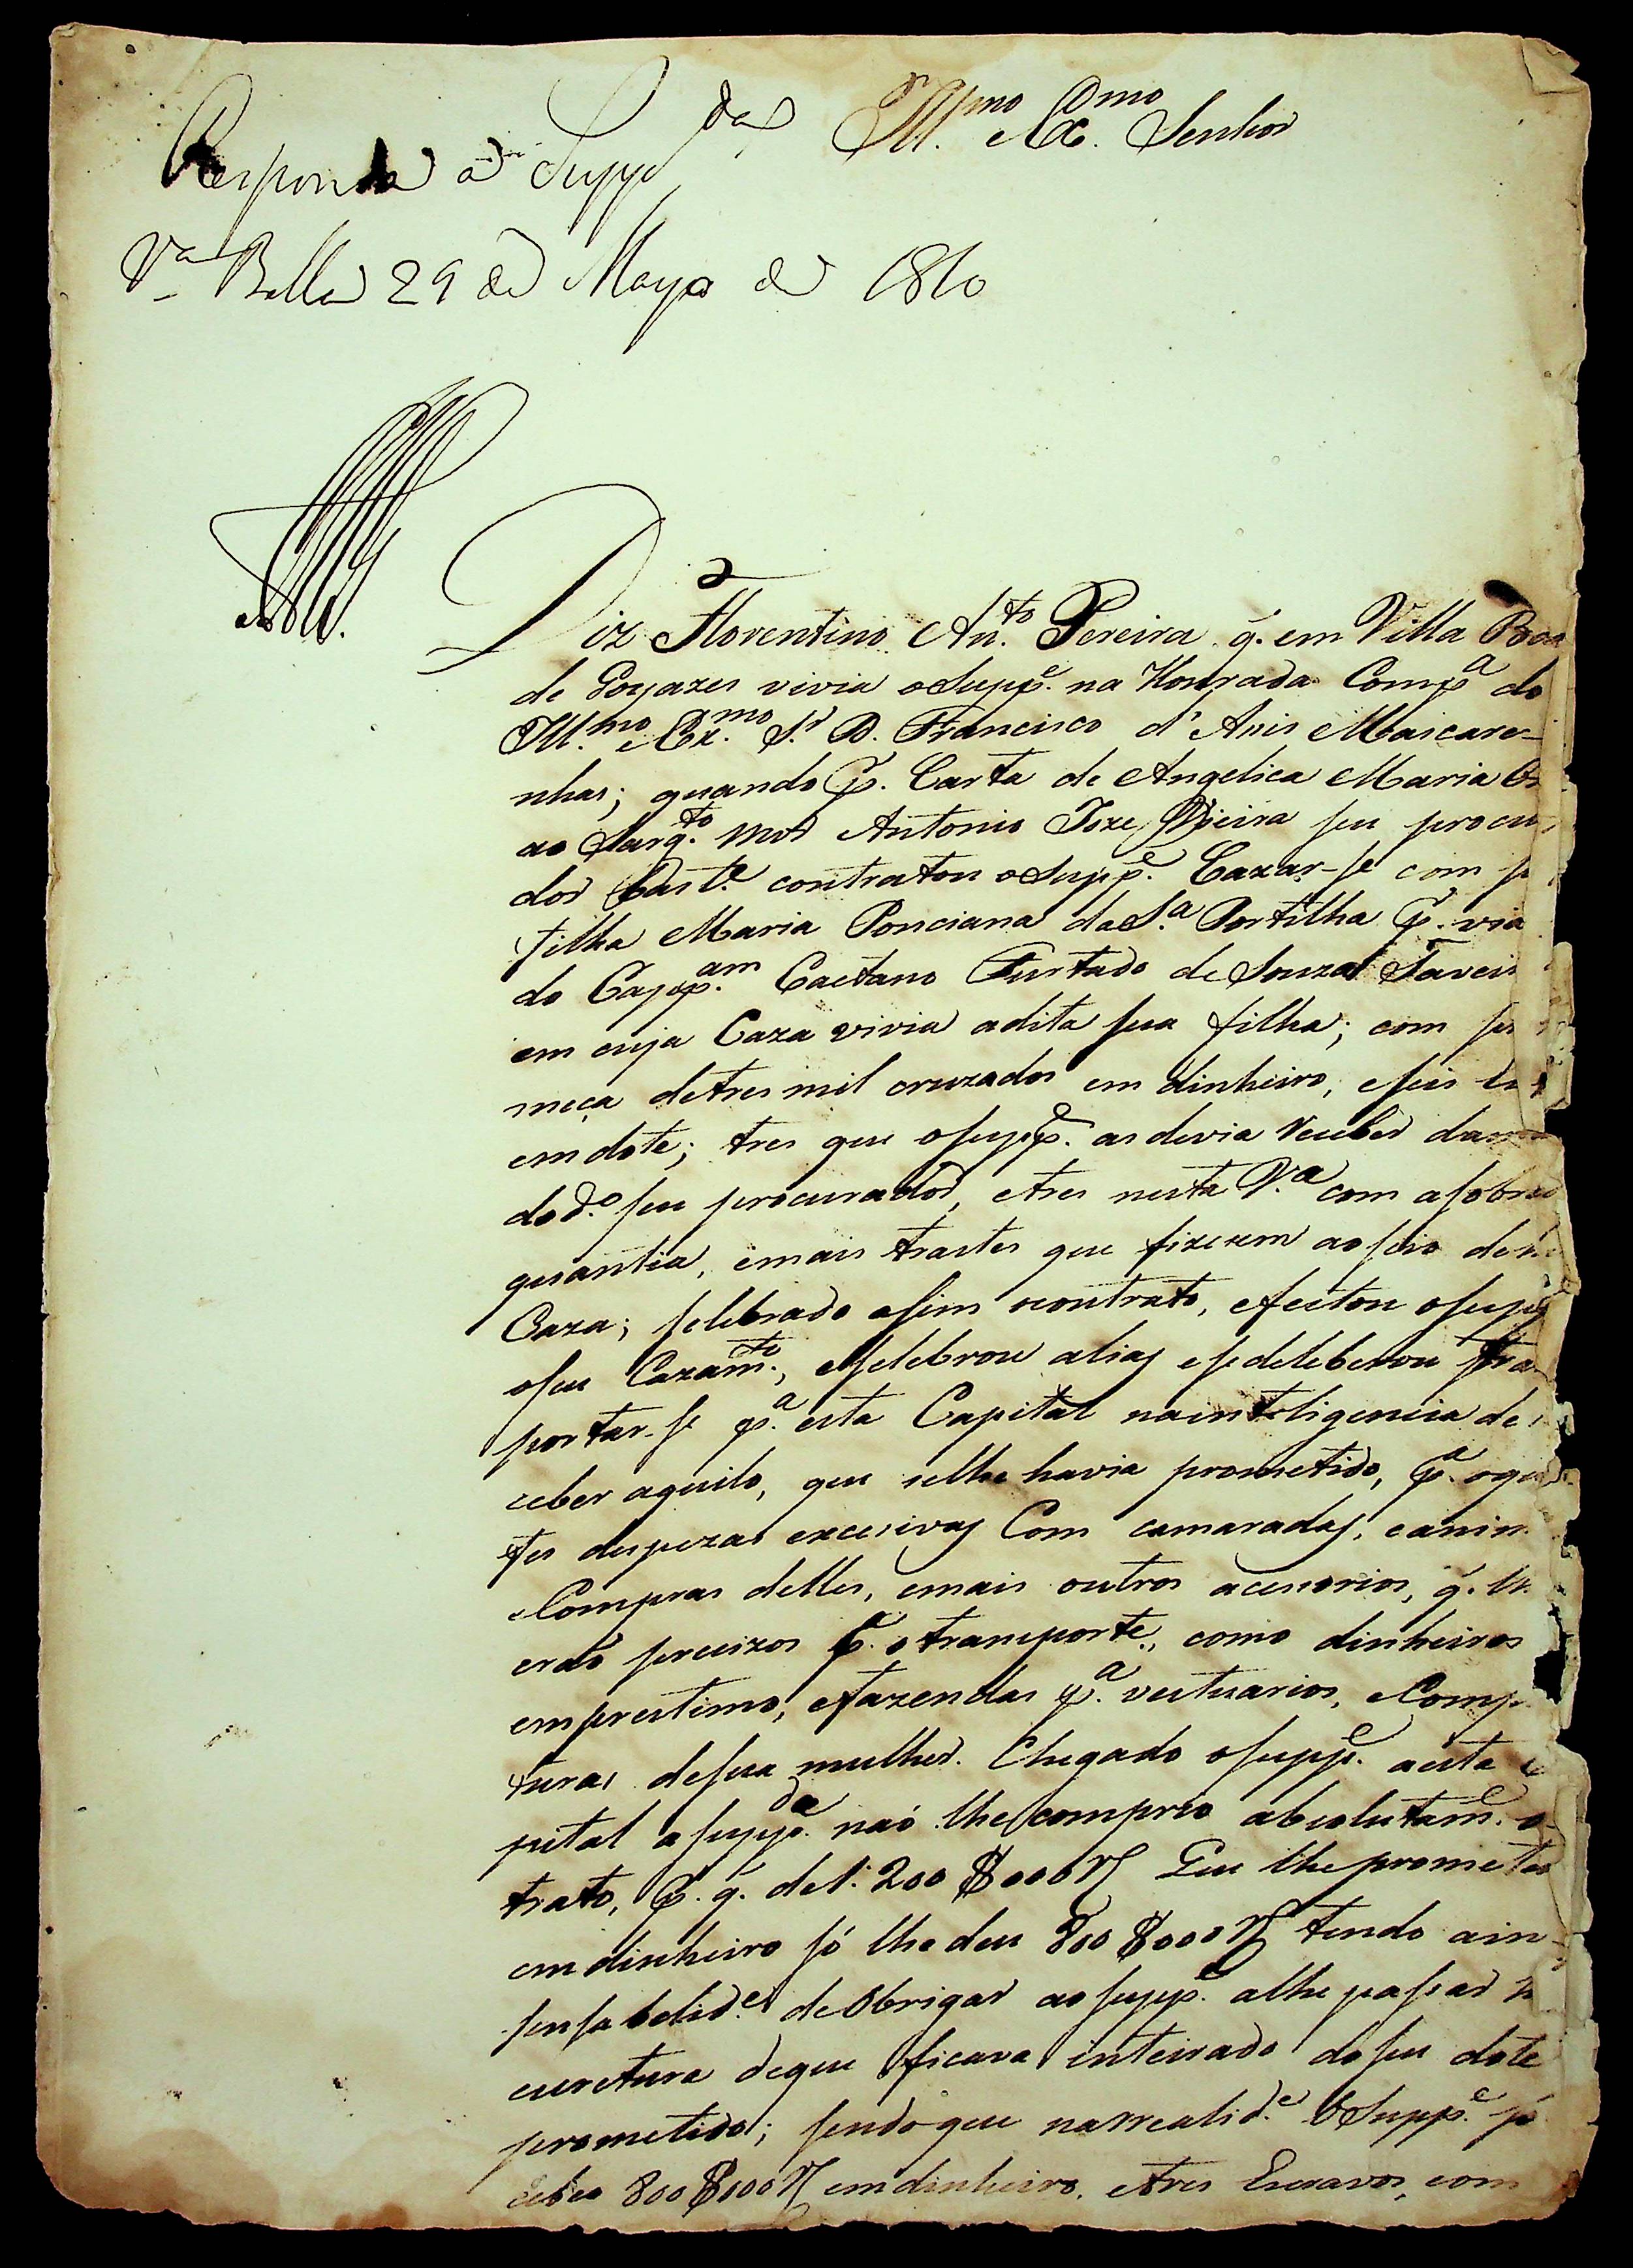 Ill.mo e Ex.mo Senhor
Responda a Supp.da
V.a Bella 29 de Mayo de 1810
Diz Florentino An.to Pereira q̃. em Villa Boa
de Goyazes vivia o Supp.e na Honrada Comp.a do
Ill.mo e Ex.mo S.r D. Francisco d'Asis Mascare-
nhas; quando p̃. Carta de Angelica Maria
ao Sarg.to mor Antonio Joze seu procu
dor Bast.e contratou o Supp.e Cazar-se com
filha Maria Ponciana da S.a Portilha p̃. via
do Capp.am Caetano Furtado de Souza
em cuja Caza vivia a dita sua filha; com
meça de tres mil cruzados em dinheiro, e seis
em dote; tres que o supp.e as devia receber da
do d.o seu procurador, e tres nesta V.a com a sobre
quantia, e mais trastes que fizerem ao seio de
Caza; selebrado asim o contrato, efeitou o sup
o seu Cazam.to, e selebrou alias e se deleberou tra
portar-se p.a esta Capital na inteligencia de
ceber aquilo, que se lhe havia prometido, p.a o que
tes despezas excesivas Com camaradas, e anim
e Compras delles, e mais outros acesorios, q̃. lh
eraõ precizos p.a o transporte, como dinheiros
emprestimo, e fazendas p.a vestuarios, e Comp
turas de sua mulher. Chegado o supp.e a esta
pital a supp.da naõ lhe comprio absolutam.e o
trato, p̃. q̃. de 1:200$000 r̃s Que lhe prometeo
em dinheiro só lhe deu 800$000 r̃s tendo ain
de Obrigar ao supp.e a lhe passar
escretura de que ficava inteirado do seu dote
prometido; sendo que na realid.e o Supp.e só
cebeo 800$000 r̃s em dinheiro, e tres Escravos, com